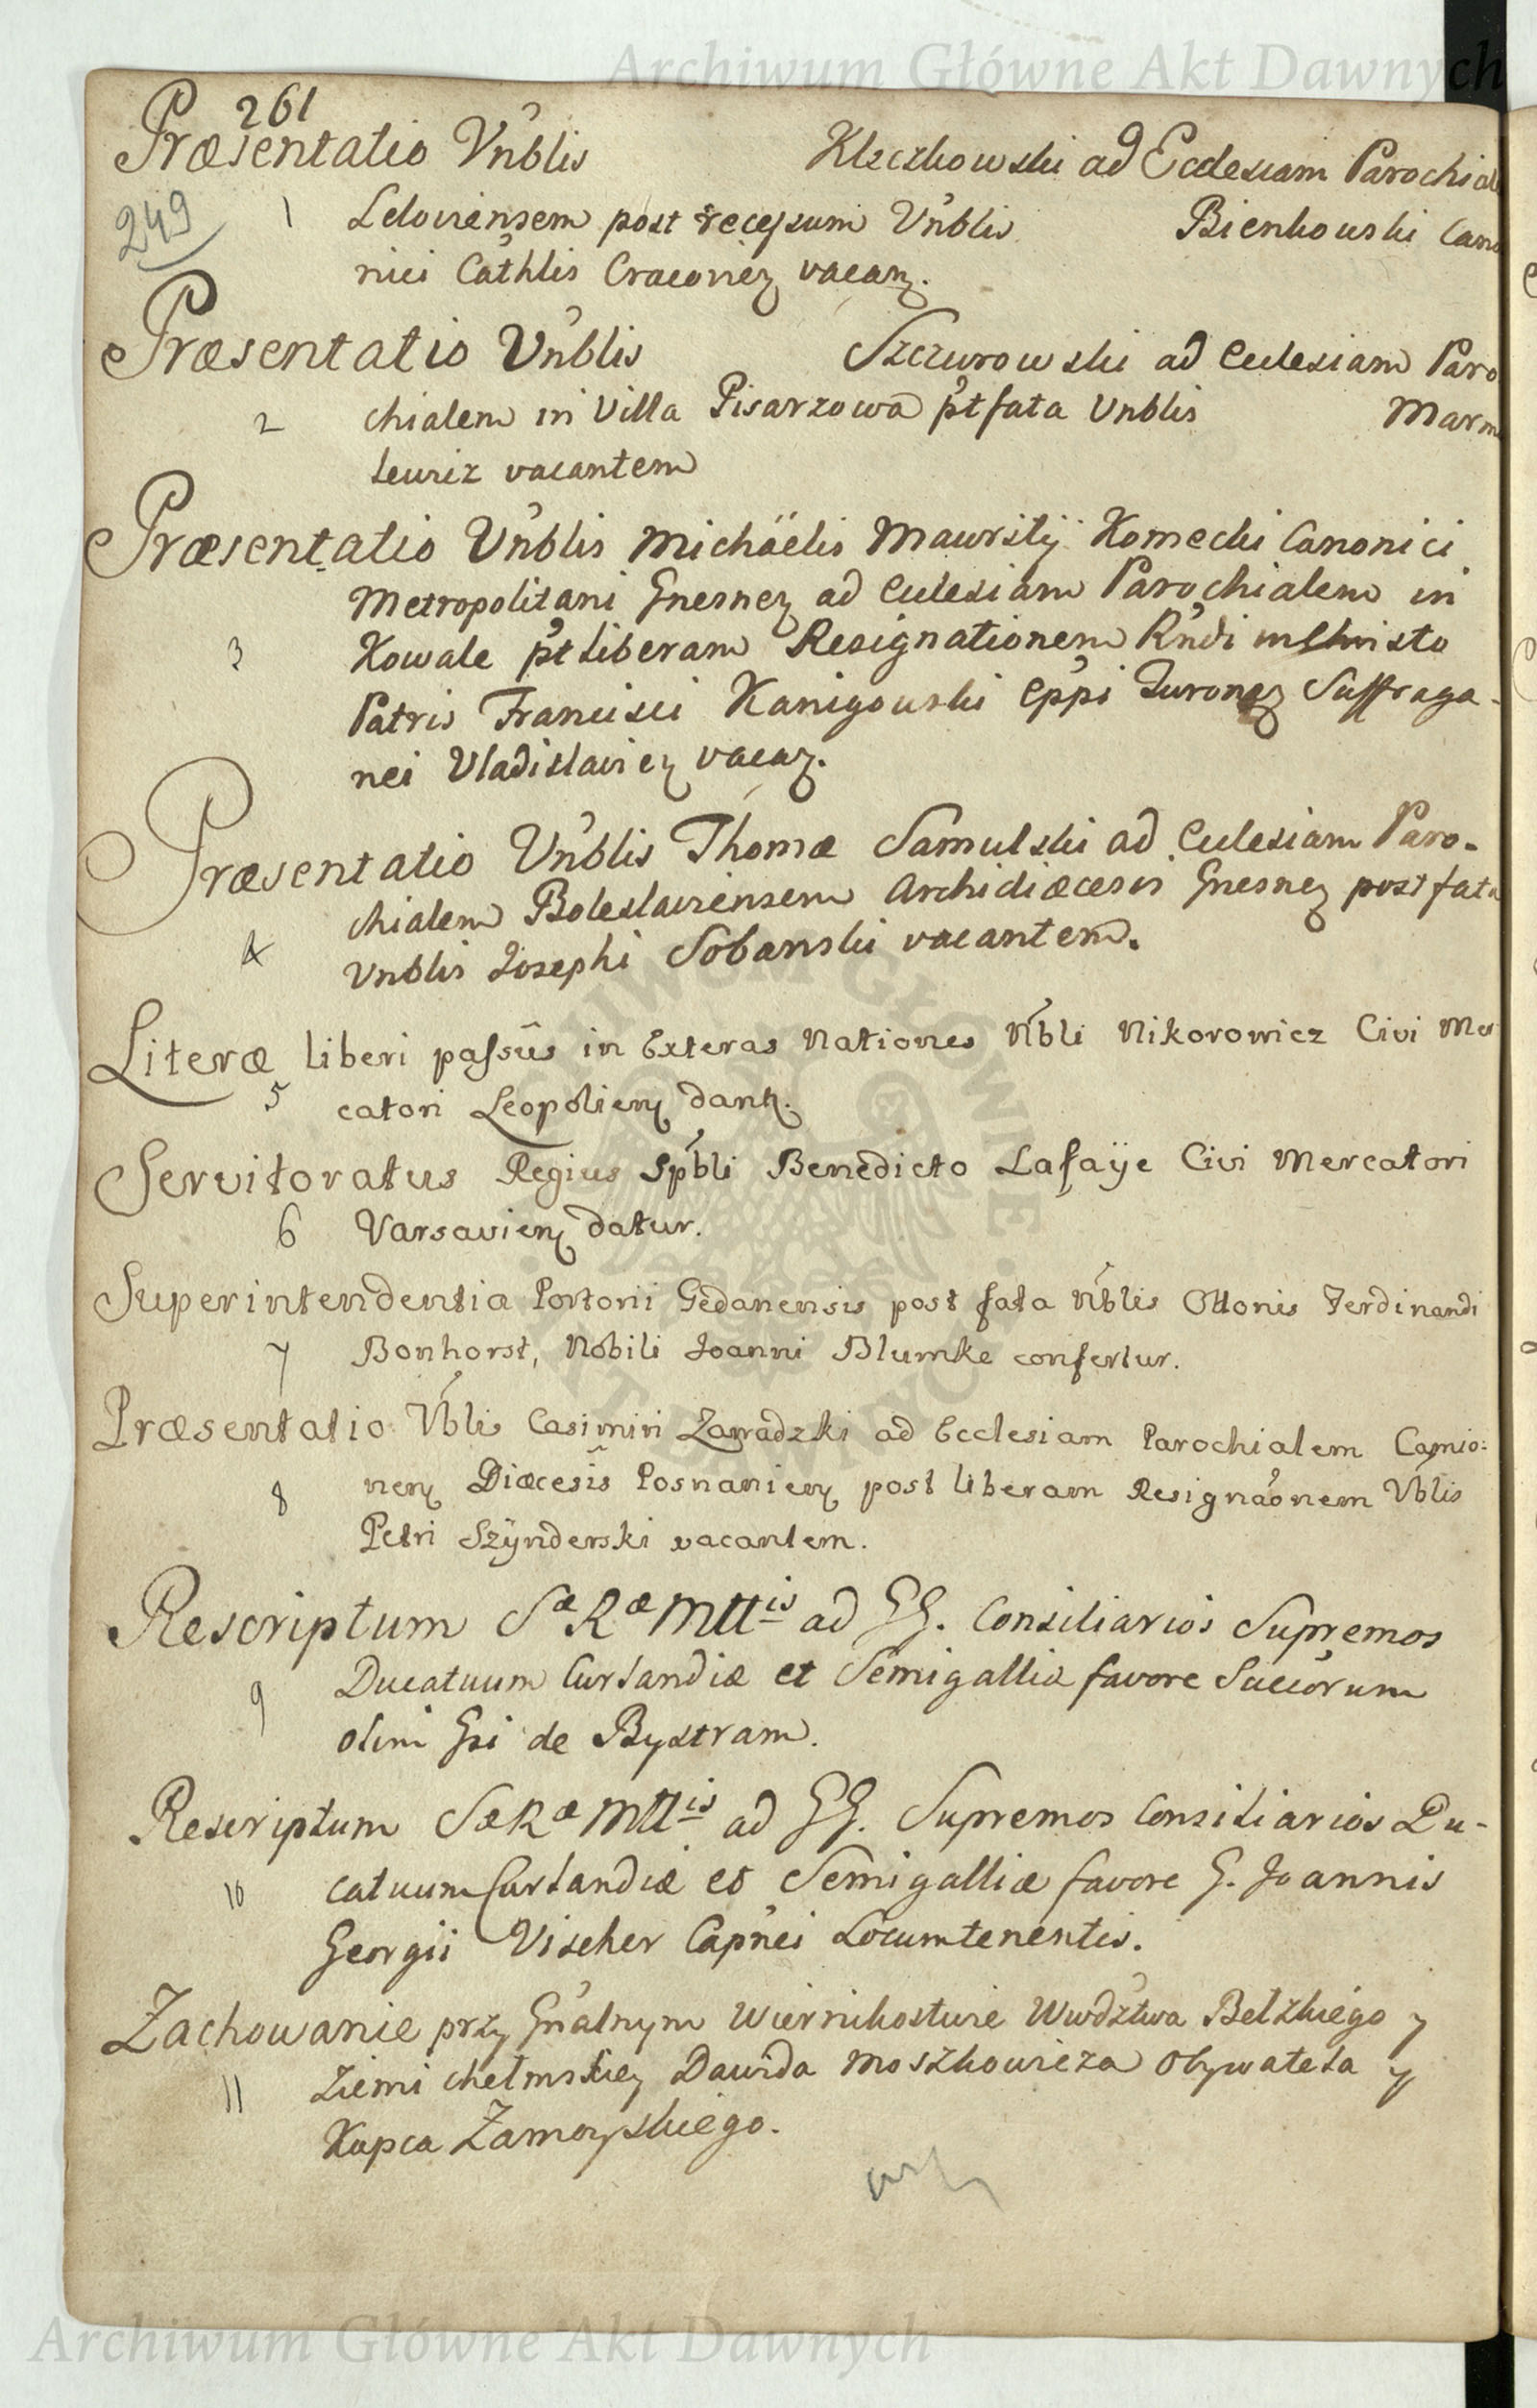 Archiwum Główne Akt Dawnych
261
Præsentatio Vn̄blis Kleczkowski ad Ecclesiam Parochial
249
1 Leloviensem post recessum Vn̄blis Bienkowski Cano
nici Cathlis Cracovien vacan.
Præsentatio Vn̄blis Szczurowski ad Ecclesiam Paro
2 chialem in Villa Pisarzowa pt fata Vnblis
vacantem
Præsentatio Vn̄blis Michäelis Mauritij Komecki Canonici
Metropolitani Gnesnen ad Ecclesiam Parochialem in
3 Kowale pt liberam Resignationem Rn̄di in Christo
Patris Francisci Kanigowski Epp̄i Suffraga-
nei Vladislavien vacan.
Præsentatio Vn̄blis Thomæ Samulski ad Ecclesiam Paro-
chialem Boleslaviensem Archidiæcesis Gnesnen post fata
4 Vnblis Josephi Sobanski vacantem.
Literæ liberi passûs in Exteras Nationes Nb̄li Nikorowicz Civi Mer
5 catori Leopolien dant.
Servitoratus Regius Spb̄li Benedicto Lafaÿe Civi Mercatori
6 Varsavien datur.
Superintendentia Portorii Gedanensis post fata Nb̄lis Ottonis Ferdinandi
7 Bonhorst, Nobili Joanni Blumke confertur.
Præsentatio Vb̄lis Casimiri Zawadzki ad Ecclesiam Parochialem Camio:
8 nen Diæcesis Posnanien post liberam Resignaōnem Vblis
Petri Szÿnderski vacantem.
Rescriptum Sæ Ræ Mttis ad GG. Consiliarios Supremos
9 Ducatuum Curlandiæ et Semigalliæ favore Succorum
olim Gsi de Bystram.
Rescriptum Sæ Ræ Mttis ad GG. Supremos Consiliarios Du-
10 catuum Curlandiæ et Semigalliæ favore G. Joannis
Georgii Vischer Capn̄ei Locumtenentis.
Zachowanie przy Gn̄alnym Wiernikostwie Wwdztwa Belzkiego y
11 Ziemi chełmskiey Dawida Moszkowicza Obywatela y
Kupca Zamoyskiego.
Archiwum Główne Akt Dawnych